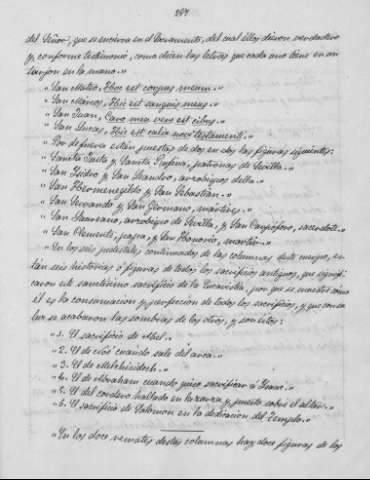 197
del Señor, que se encierra en el Sacramento, del cual ellos dieron verdadero
y conforme testimonio, como dicen las letras que cada uno tiene en un
tarjon en la mano."
"San Mateo, Hoc est corpus meum."
"San Marcos, Hic est sanguis meus."
"San Juan, Caro mea vere est cibus."
"San Lucas, Hic est calix novi testamenti."
"Por de fuera están puestas de dos en dos las figuras siguientes:
"Santa Justa y Santa Rufina, patronas de Sevilla."
"San Isidro y San Leandro, arzobispos della."
"San Hermenegildo y San Sebastian."
"San Servando y San Germano, mártires."
"San Laureano, arzobispo de Sevilla, y San Carpóforo, sacerdote."
"San Clemente, papa, y San Honorio, martir."
"En los seis pedestales continuados de las columnas deste cuerpo, es-
tán seis historias ó figuras de todos los sacrificios antiguos, que signifi-
caron este santísimo sacrificio de la Eucaristía, por que se muestre cómo
él es la consumacion y perfeccion de todos los sacrificios, y que con su
luz se acabaron las sombras de los otros, y son estos:
"1. El sacrificio de Abel."
"2. El de Noé cuando salió del arca."
"3. El de Melchisedech."
"4. El de Abraham cuando quiso sacrificar á Isaac."
"5. El del cordero hallado en la zarza y puesto sobre el altar."
"6. El sacrificio de Salomon en la dedicacion del Templo."
"En los doce remates destas columnas hay doce figuras de los